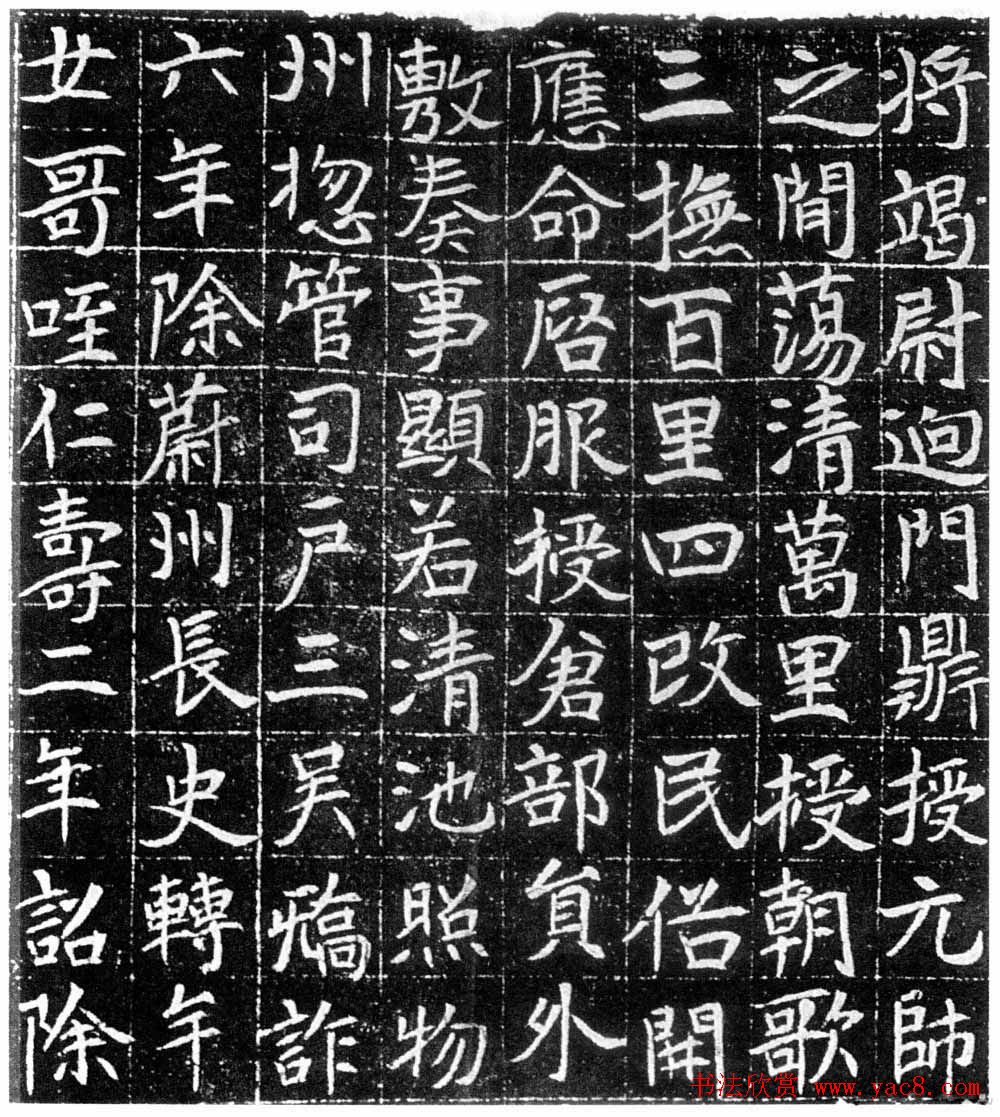 将竭尉迥門鼎授元帥
之間蕩清萬里授朝歌
三撫百里四改民俗開
應命啓服授倉部貟外
敷奏事顯若清池照物
州揔管司户三吴矯詐
六年除蔚州長史轉年
女哥咥仁壽二年詔除
书法欣赏 www.yac8.com